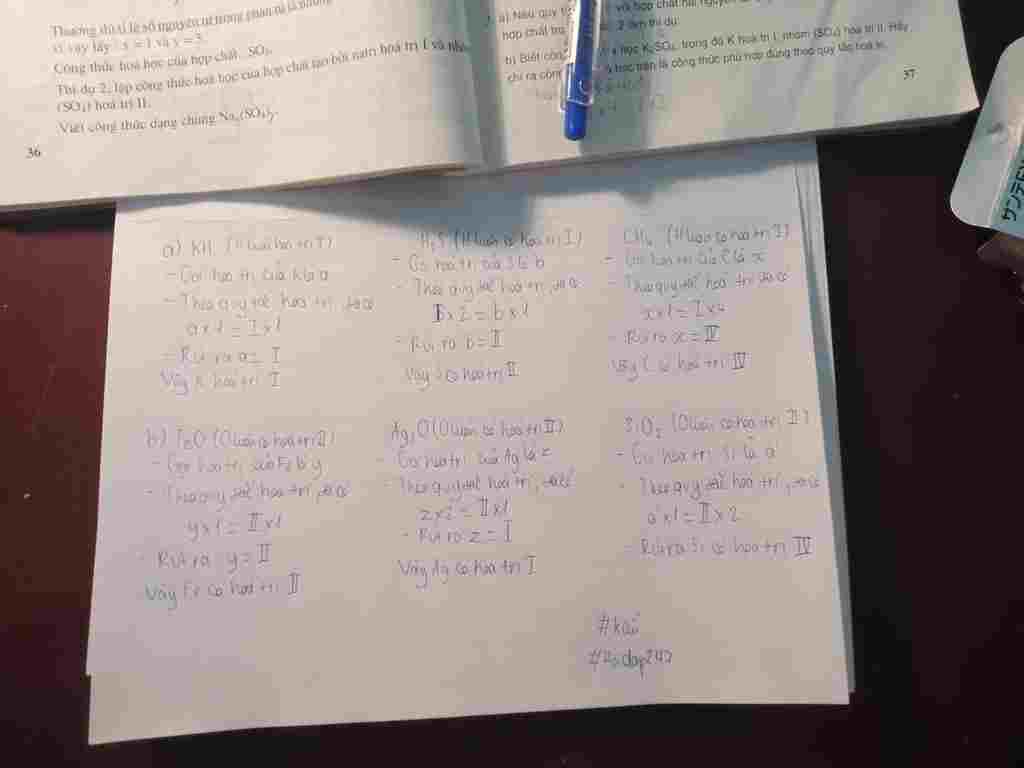 Thường thì tỉ lệ số nguyên tử trong phân tử là những
vì vậy lấy : x = 1 và y = 3.
Công thức hoá học của hợp chất : SO₃.
Thí dụ 2, lập công thức hoá học của hợp chất tạo bởi natri hoá trị I và nhóm
(SO₄) hoá trị II.
Viết công thức dạng chung Naₓ(SO₄)ᵧ.
36
a) Nêu quy
với hợp chất hai nguyên
hợp chất
2 làm thí dụ.
b) Biết công
học K₂SO₄, trong đó K hoá trị I, nhóm (SO₄) hoá trị II. Hãy
chỉ ra công
học trên là công thức phù hợp đúng theo quy tắc hoá trị.
37
サンテ
a) KH (H luôn hoá trị I)
- Gọi hoá trị của K là a
- Theo quy tắc hoá trị, ta có
a x 1 = I x 1
- Rút ra a = I
Vậy K hoá trị I
H₂S (H luôn có hoá trị I)
- Gọi hoá trị của S là b
- Theo quy tắc hoá trị, ta có
I x 2 = b x 1
- Rút ra b = II
Vậy S có hoá trị II
CH₄ (H luôn có hoá trị I)
- Gọi hoá trị của C là x
- Theo quy tắc hoá trị ta có
x x 1 = I x 4
- Rút ra x = IV
Vậy C có hoá trị IV
b) FeO (O luôn có hoá trị II)
- Gọi hoá trị của Fe là y
- Theo quy tắc hoá trị, ta có
y x 1 = II x 1
- Rút ra y = II
Vậy Fe có hoá trị II
Ag₂O (O luôn có hoá trị II)
- Gọi hoá trị của Ag là z
- Theo quy tắc hoá trị, ta có
z x 2 = II x 1
- Rút ra z = I
Vậy Ag có hoá trị I
SiO₂ (O luôn có hoá trị II)
- Gọi hoá trị Si là a'
- Theo quy tắc hoá trị, ta có
a' x 1 = II x 2
- Rút ra Si có hoá trị IV